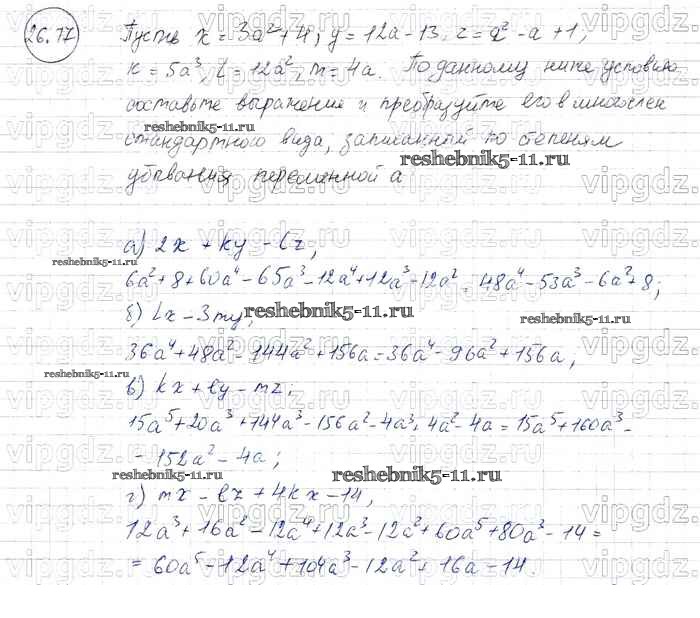 26.77
Пусть x = 3a² + 4; y = 12a - 13, z = a² - a + 1;
k = 5a³, l = 12a², m = 4a. По данному ниже условию
составьте выражение и преобразуйте его в многочлен
стандартного вида, записанной по степеням
убывания переменной a
а) 2x + ky - lz;
6a² + 8 + 60a⁴ - 65a³ - 12a⁴ + 12a³ - 12a² = 48a⁴ - 53a³ - 6a² + 8;
б) lx - 3my;
36a⁴ + 48a² - 144a² + 156a = 36a⁴ - 96a² + 156a;
в) kx + ly - mz;
15a⁵ + 20a³ + 144a³ - 156a² - 4a³ + 4a² - 4a = 15a⁵ + 160a³ -
- 152a² - 4a;
г) mx - lz + 4kx - 14,
12a³ + 16a² - 12a⁴ + 12a³ - 12a² + 60a⁵ + 80a³ - 14 =
= 60a⁵ - 12a⁴ + 104a³ - 12a² + 16a - 14.
reshebnik5-11.ru
reshebnik5-11.ru
reshebnik5-11.ru
reshebnik5-11.ru
reshebnik5-11.ru
reshebnik5-11.ru
reshebnik5-11.ru
reshebnik5-11.ru